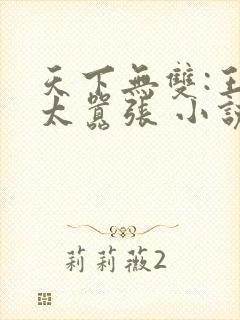 天下無雙:王
太囂張 小說
莉莉薇2